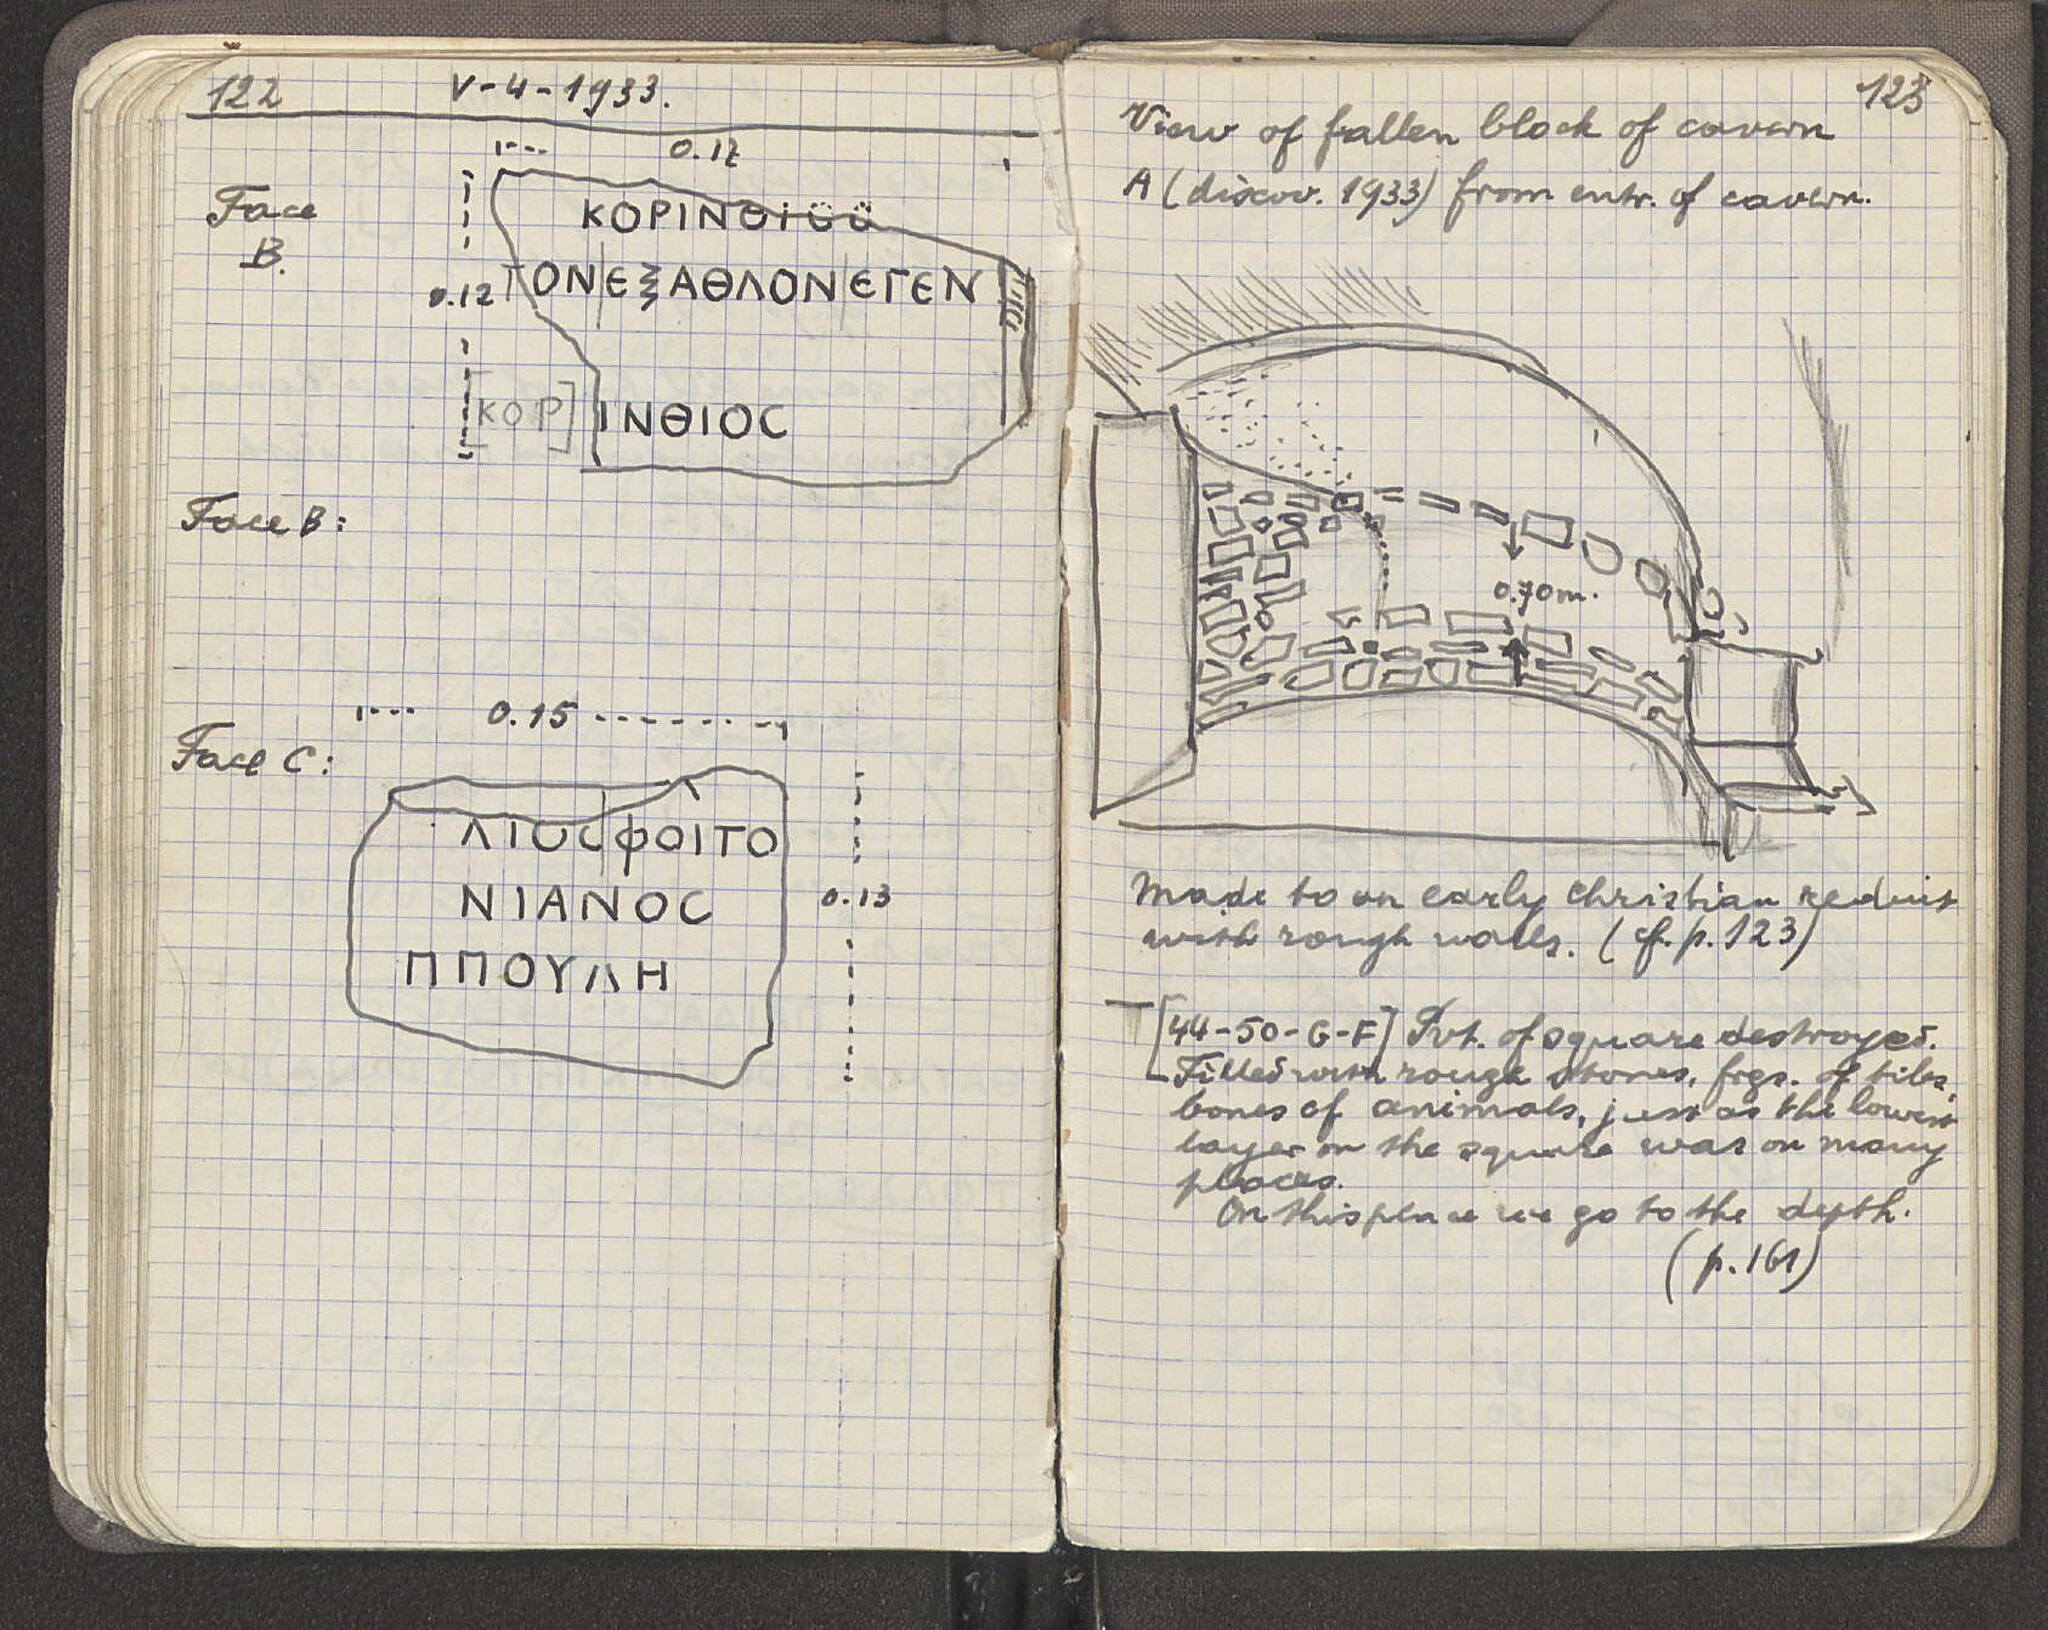 122
V-4-1933.
0.12
Face
B.
0.12
ΚΟΡΙΝΘΙ
ΤΟΝΕΞΑΘΛΟΝΕΓΕΝ
[ΚΟΡ]ΙΝΘΙΟC
Face B:
0.15
Face C:
ΛΙΟC ΦΟΙΤΟ
ΝΙΑΝΟC
ΠΠΟΥΛΗ
0.13
123
View of fallen block of cavern
A (discov. 1933) from entr. of cavern.
0.70m.
Made to an early christian reduit
with rough walls. (cf. p. 123)
[44-50-G-F] Pvt. of square destroyed.
Filled with rough stones, frgs. of tiles,
bones of animals, just as the lowest
layer on the square was on many
places.
On this place we go to the depth.
(p. 161)